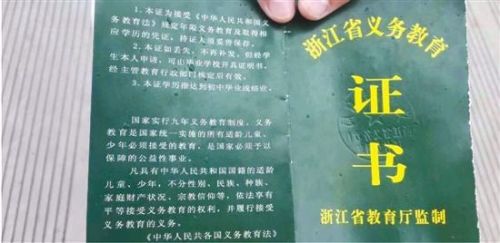 1.本证为接受《中华人民共和国义
务教育法》规定年限义务教育及取得相
应学历的凭证，持证人须妥善保存。
2.本证如丢失，不再补发，但经学
生本人申请，可由毕业学校开具证明书，
经主管教育行政部门核定后有效。
3.本证学历指达到初中毕业或结业。
国家实行九年义务教育制度。义务
教育是国家统一实施的所有适龄儿童、
少年必须接受的教育，是国家必须予以
保障的公益性事业。
凡具有中华人民共和国国籍的适龄
儿童、少年，不分性别、民族、种族、
家庭财产状况、宗教信仰等，依法享有
平等接受义务教育的权利，并履行接受
义务教育的义务。
《中华人民共各国义务教育法》
浙江省义务教育
证
书
浙江省教育厅监制